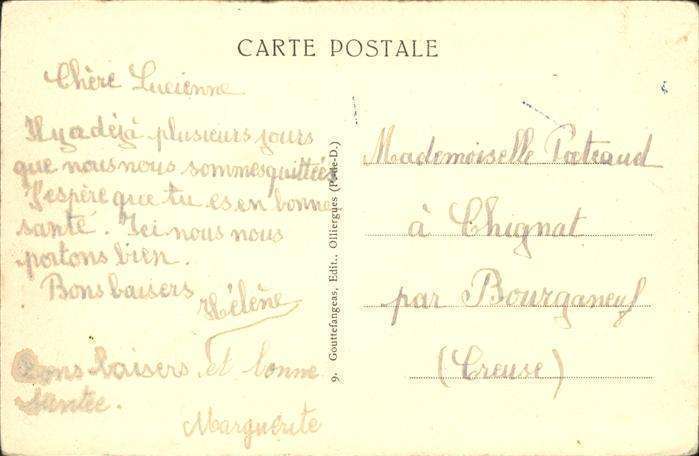 CARTE POSTALE
Chère Lucienne
Il y a déjà plusieurs jours
que nous nous sommes quittées
J'espère que tu es en bonne
santé. Ici nous nous
portons bien.
Bons baisers
Hélène
Bons baisers et bonne
Santée.
Marguerite
9. Gouttefangeas, Edit., Olliergues (P.-de-D.)
Mademoiselle
à Chignat
par Bourganeuf
(Creuse)